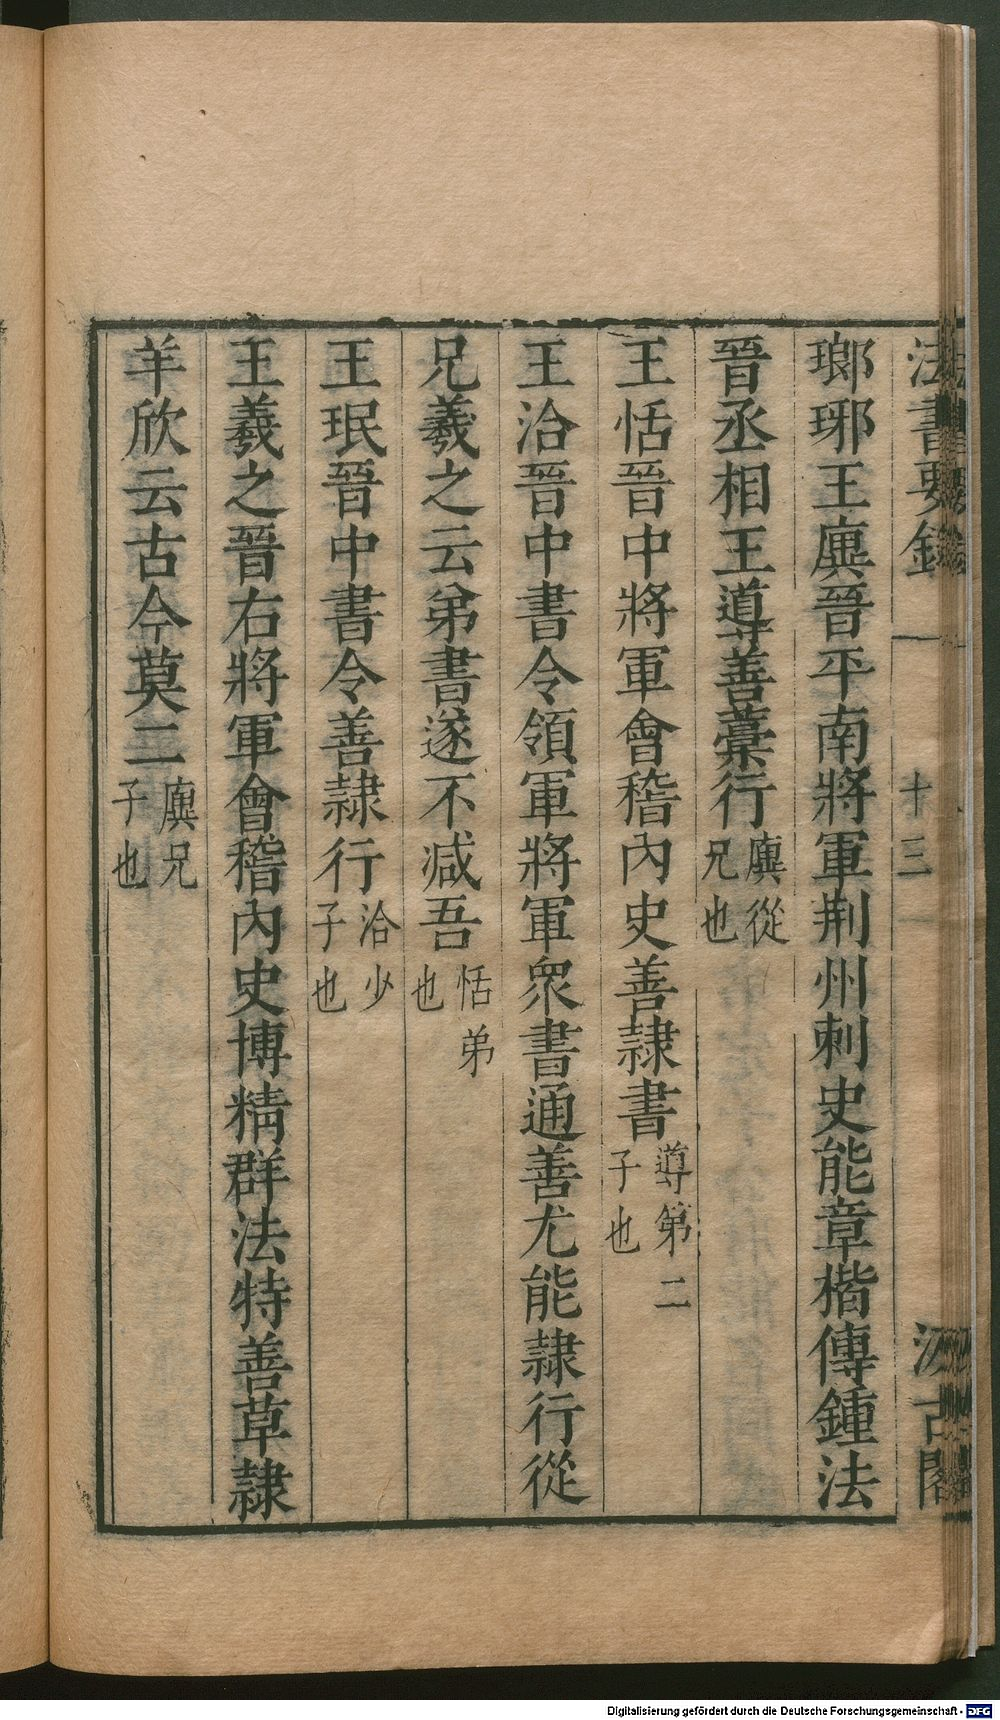 法書要錄 一 十三 汲古閣
瑯琊王廙晉平南將軍荆州刺史能章楷傳鍾法
晉丞相王導善藁行廙從兄也
王恬晉中將軍會稽內史善隷書導第二子也
王洽晉中書令領軍將軍衆書通善尤能隷行從
兄羲之云弟書遂不减吾恬弟也
王珉晉中書令善隷行洽少子也
王羲之晉右將軍會稽內史博精群法特善草隷
羊欣云古今莫二廙兄子也
Digitalisierung gefördert durch die Deutsche Forschungsgemeinschaft - DFG